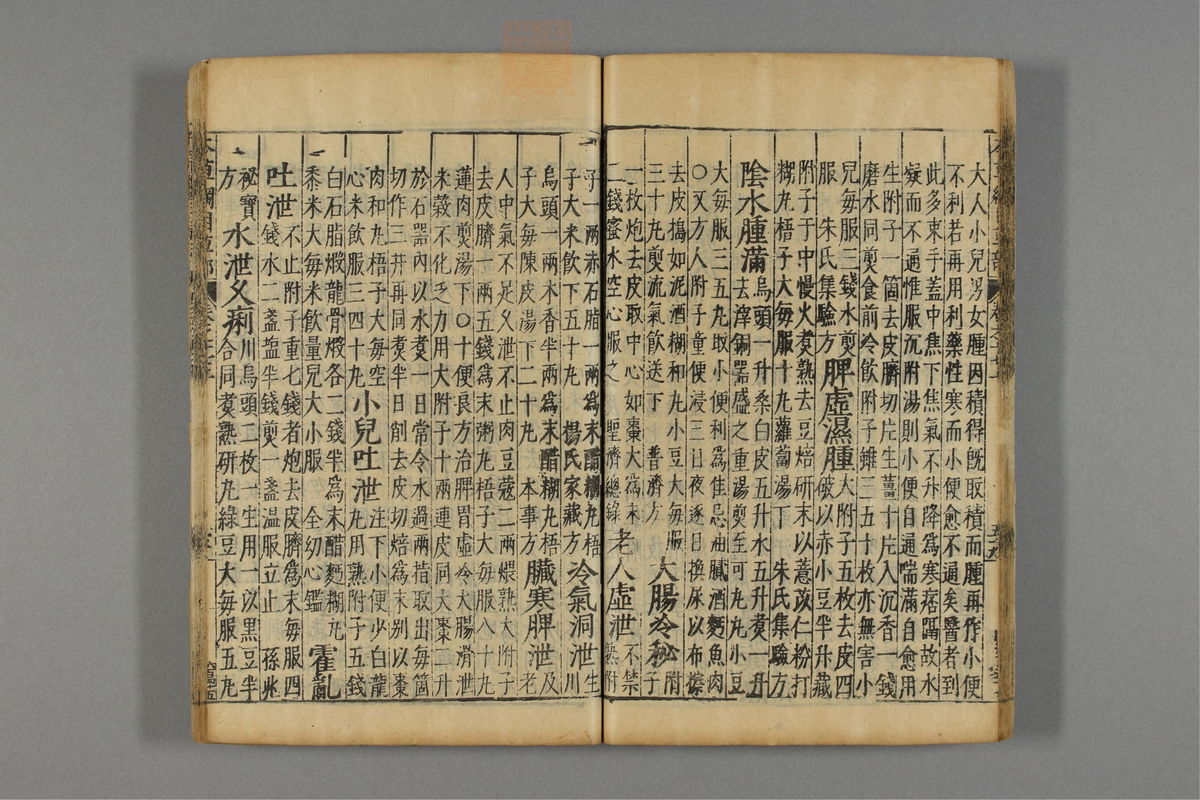 大人小兒男女腫因積得既取積而腫再作小便
不利若再用利藥性寒而小便愈不通矣醫者到
此多束手蓋中焦下焦氣不升降爲寒痞隔故水
凝而不通惟服沉附湯則小便自通喘滿自愈用
生附子一箇去皮臍切片生薑十片入沉香一錢
磨水同煎食前冷飲附子雖三五十枚亦無害小
兒每服三錢水煎
服 朱氏集驗方
脾虛濕腫
大附子五枚去皮四
破以赤小豆半升藏
附子于中慢火煮熟去豆焙研末以薏苡仁粉打
糊丸梧子大每服十丸蘿蔔湯下 朱氏集驗方
陰水腫滿
烏頭一升桑白皮五升水五升煮一升
去滓銅器盛之重湯煎至可丸丸小豆
大每服三五丸取小便利爲佳忌油膩酒麪魚肉
○又方大附子童便浸三日夜逐日換尿以布擦
去皮搗如泥酒糊和丸小豆大每服
三十丸煎流氣飲送下 普濟方
大腸冷秘
附
子
一枚炮去皮取中心如棗大爲末
二錢蜜水空心服之 聖濟總錄
老人虛泄
不禁
熟附
子一兩赤石脂一兩爲末醋糊丸梧
子大米飲下五十丸 楊氏家藏方
冷氣洞泄
生
川
烏頭一兩木香半兩爲末醋糊丸梧
子大每陳皮湯下二十丸 本事方
臟寒脾泄
及
老
人中氣不足久泄不止肉豆蔻二兩煨熟大附子
去皮臍一兩五錢爲末粥丸梧子大每服八十丸
蓮肉煎湯下○十便良方治脾胃虛冷大腸滑泄
米穀不化乏力用大附子十兩連皮同大棗二升
於石器內以水煮一日常令水過兩指取出每箇
切作三片再同煮半日削去皮切焙爲末別以棗
肉和丸梧子大每空
心米飲服三四十丸
小兒吐泄
注下小便少白龍
丸用熟附子五錢
白石脂煅龍骨煅各二錢半爲末醋麪糊丸
黍米大每米飲量兒大小服 全幼心鑑
霍亂
吐泄
不止附子重七錢者炮去皮臍爲末每服四
錢水二盞鹽半錢煎一盞溫服立止 孫兆
祕寶
方
水泄久痢
川烏頭二枚一生用一以黑豆半
合同煮熟研丸綠豆大每服五丸